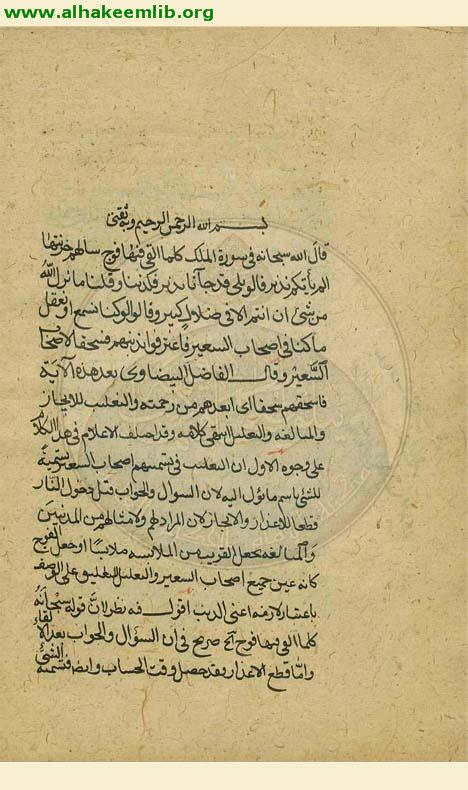 www.alhakeemlib.org
بسم الله الرحمن الرحيم وبه ثقتي
قال الله سبحانه في سورة الملك كلما القي فيها فوج سالهم خزنتها
الم ياتكم نذير قالوا بلى قد جآنا نذير فكذبنا وقلنا ما نزل الله
من شئ ان انتم الا في ضلال كبير وقالوا لو كنا نسمع او نعقل
ما كنا في اصحاب السعير فاعترفوا بذنبهم فسحقا لاصحاب
السعير وقال الفاضل البيضاوي بعد هذه الآية
فاسحقهم سحقا اى ابعدهم من رحمته والتغليب للايجاز
والمبالغه والتعليل انتهى كلامه وقد اختلف الاعلام في حل الكلام
على وجوه الاول ان التغليب في تسميتهم اصحاب السعير تسمية
للشئ باسم ما يؤل اليه لان السوال والجواب قبل دخول النار
قطعا للاعذار والايجاز لان المراد لهم ولامثالهم من المذنبين
والمبالغه بجعل القريب من الملابسه ملابسا او جعل الفوج
كانه عين جميع اصحاب السعير والتعليل التعليق على الوصف
باعتبار لازمه اعنى الذنب اقول فيه نظر لان قوله سبحانه
كلما القي فيها فوج آلخ صريح في ان السؤال والجواب بعد الالقاء
واما قطع الاعذار فقد حصل وقت الحساب وايضا فتسمية الشئ